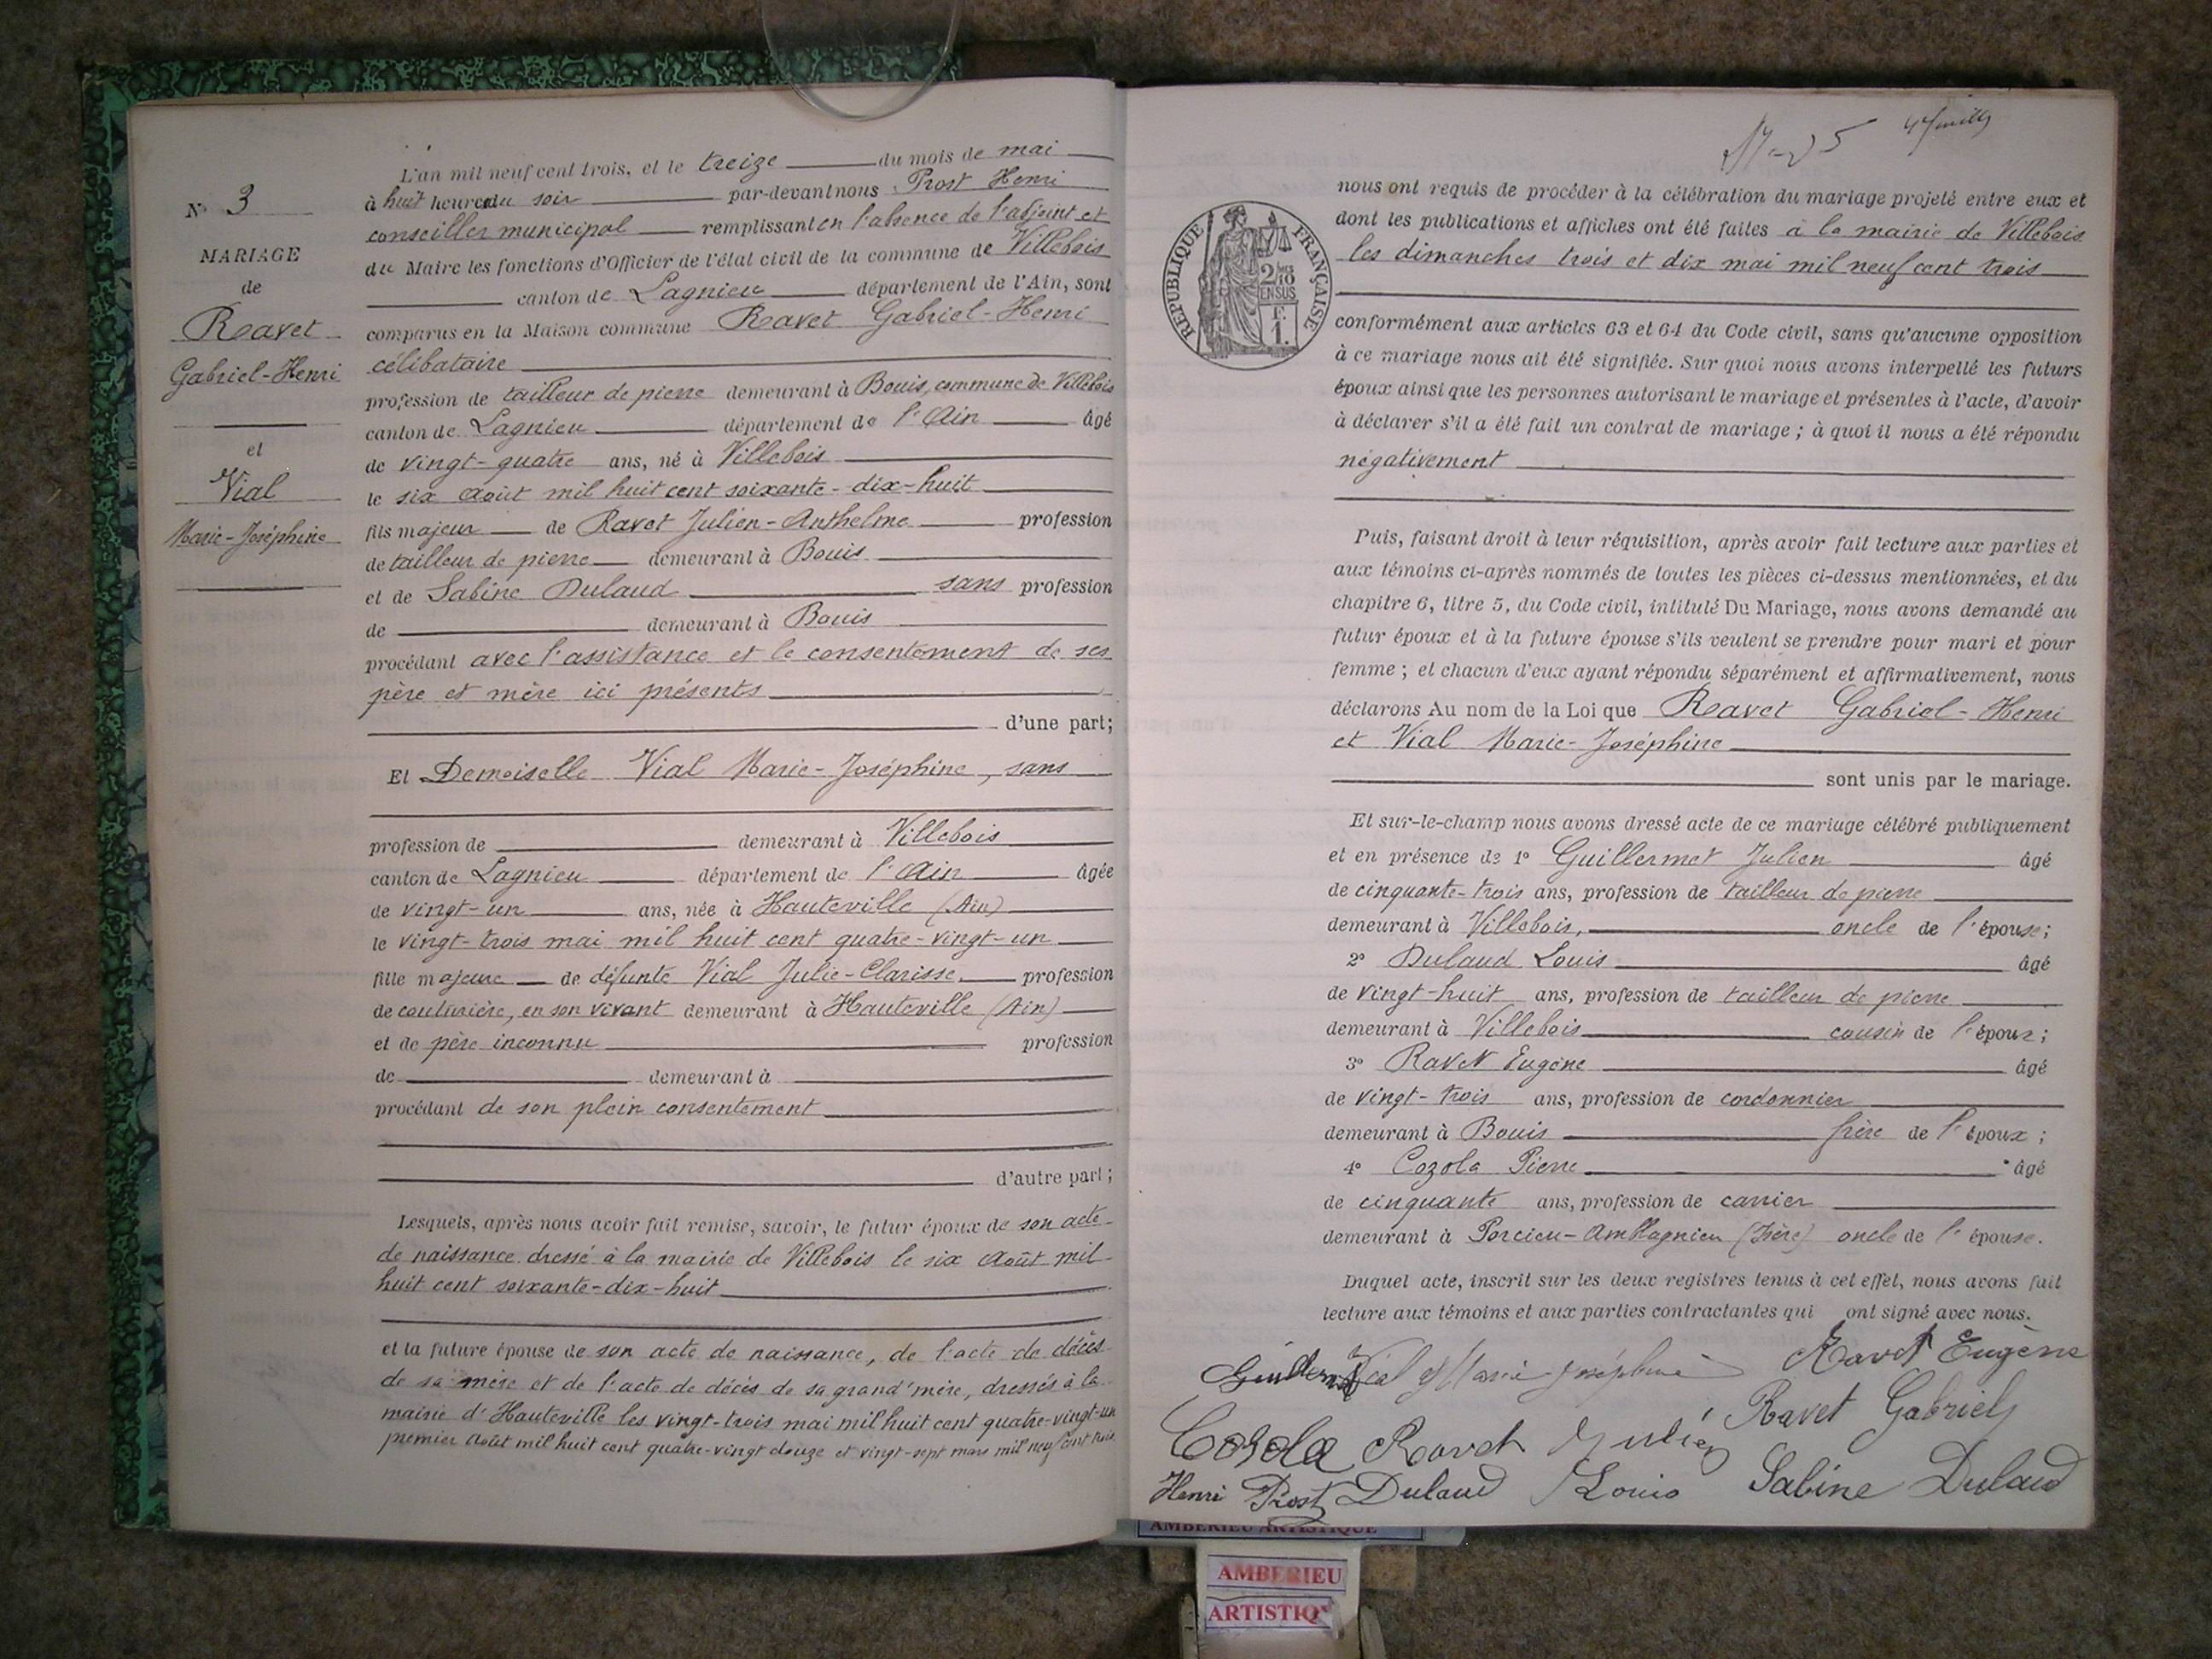 N° 3
MARIAGE
de
Ravet
Gabriel-Henri
et
Vial
Marie-Joséphine
L'an mil neuf cent trois, et le treize du mois de mai
à huit heures du soir par-devant nous Prost Henri
conseiller municipal remplissant en l'absence de l'adjoint et
du Maire les fonctions d'Officier de l'état civil de la commune de Villebois
canton de Lagnieu département de l'Ain, sont
comparus en la Maison commune Ravet Gabriel-Henri
célibataire
profession de tailleur de pierre demeurant à Bouis, commune de Villebois
canton de Lagnieu département de l'Ain âgé
de vingt-quatre ans, né à Villebois
le six août mil huit cent soixante-dix-huit
fils majeur de Ravet Julien-Anthelme profession
de tailleur de pierre demeurant à Bouis
et de Sabine Dulaud sans profession
de demeurant à Bouis
procédant avec l'assistance et le consentement de ses
père et mère ici présents
d'une part;
Et Demoiselle Vial Marie-Joséphine, sans
profession de demeurant à Villebois
canton de Lagnieu département de l'Ain âgée
de vingt-un ans, née à Hauteville (Ain)
le vingt-trois mai mil huit cent quatre-vingt-un
fille majeure de défunte Vial Julie-Clarisse, profession
de couturière, en son vivant demeurant à Hauteville (Ain)
et de père inconnu profession
de demeurant à
procédant de son plein consentement
d'autre part;
Lesquels, après nous avoir fait remise, savoir, le futur époux de son acte
de naissance dressé à la mairie de Villebois le six Août mil
huit cent soixante-dix-huit
et la future épouse de son acte de naissance, de l'acte de décès
de sa mère et de l'acte de décès de sa grand'mère, dressés à la
mairie d'Hauteville les vingt-trois mai mil huit cent quatre-vingt-un
premier Août mil huit cent quatre-vingt douze et vingt-sept mars mil neuf cent trois
RÉPUBLIQUE FRANÇAISE
2/10
EN SUS
F.
1.
nous ont requis de procéder à la célébration du mariage projeté entre eux et
dont les publications et affiches ont été faites à la mairie de Villebois
les dimanches trois et dix mai mil neuf cent trois
conformément aux articles 63 et 64 du Code civil, sans qu'aucune opposition
à ce mariage nous ait été signifiée. Sur quoi nous avons interpellé les futurs
époux ainsi que les personnes autorisant le mariage et présentes à l'acte, d'avoir
à déclarer s'il a été fait un contrat de mariage; à quoi il nous a été répondu
négativement
Puis, faisant droit à leur réquisition, après avoir fait lecture aux parties et
aux témoins ci-après nommés de toutes les pièces ci-dessus mentionnées, et du
chapitre 6, titre 5, du Code civil, intitulé Du Mariage, nous avons demandé au
futur époux et à la future épouse s'ils veulent se prendre pour mari et pour
femme; et chacun d'eux ayant répondu séparément et affirmativement, nous
déclarons Au nom de la Loi que Ravet Gabriel-Henri
et Vial Marie-Joséphine
sont unis par le mariage.
Et sur-le-champ nous avons dressé acte de ce mariage célébré publiquement
et en présence de 1° Guillermet Julien âgé
de cinquante-trois ans, profession de tailleur de pierre
demeurant à Villebois, oncle de l'épouse;
2° Dulaud Louis âgé
de vingt-huit ans, profession de tailleur de pierre
demeurant à Villebois cousin de l'époux;
3° Ravet Eugène âgé
de vingt-trois ans, profession de cordonnier
demeurant à Bouis frère de l'époux;
4° Cozola Pierre âgé
de cinquante ans, profession de carrier
demeurant à Porcieu-Amblagnieu (Isère) oncle de l'épouse.
Duquel acte, inscrit sur les deux registres tenus à cet effet, nous avons fait
lecture aux témoins et aux parties contractantes qui ont signé avec nous.
Vial Marie Joséphine Ravet Eugène
Ravet Julien Ravet Gabriel
Henri Prost Dulaud Louis Sabine Dulaud
AMBERIEU ARTISTIQUE
AMBERIEU
ARTISTIQ